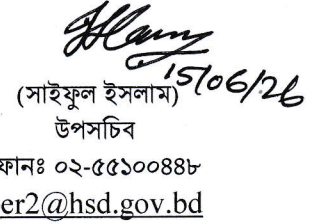 15/06/26
(সাইফুল ইসলাম)
উপসচিব
ফোনঃ ০২-৫৫১০০৪৪৮
er2@hsd.gov.bd